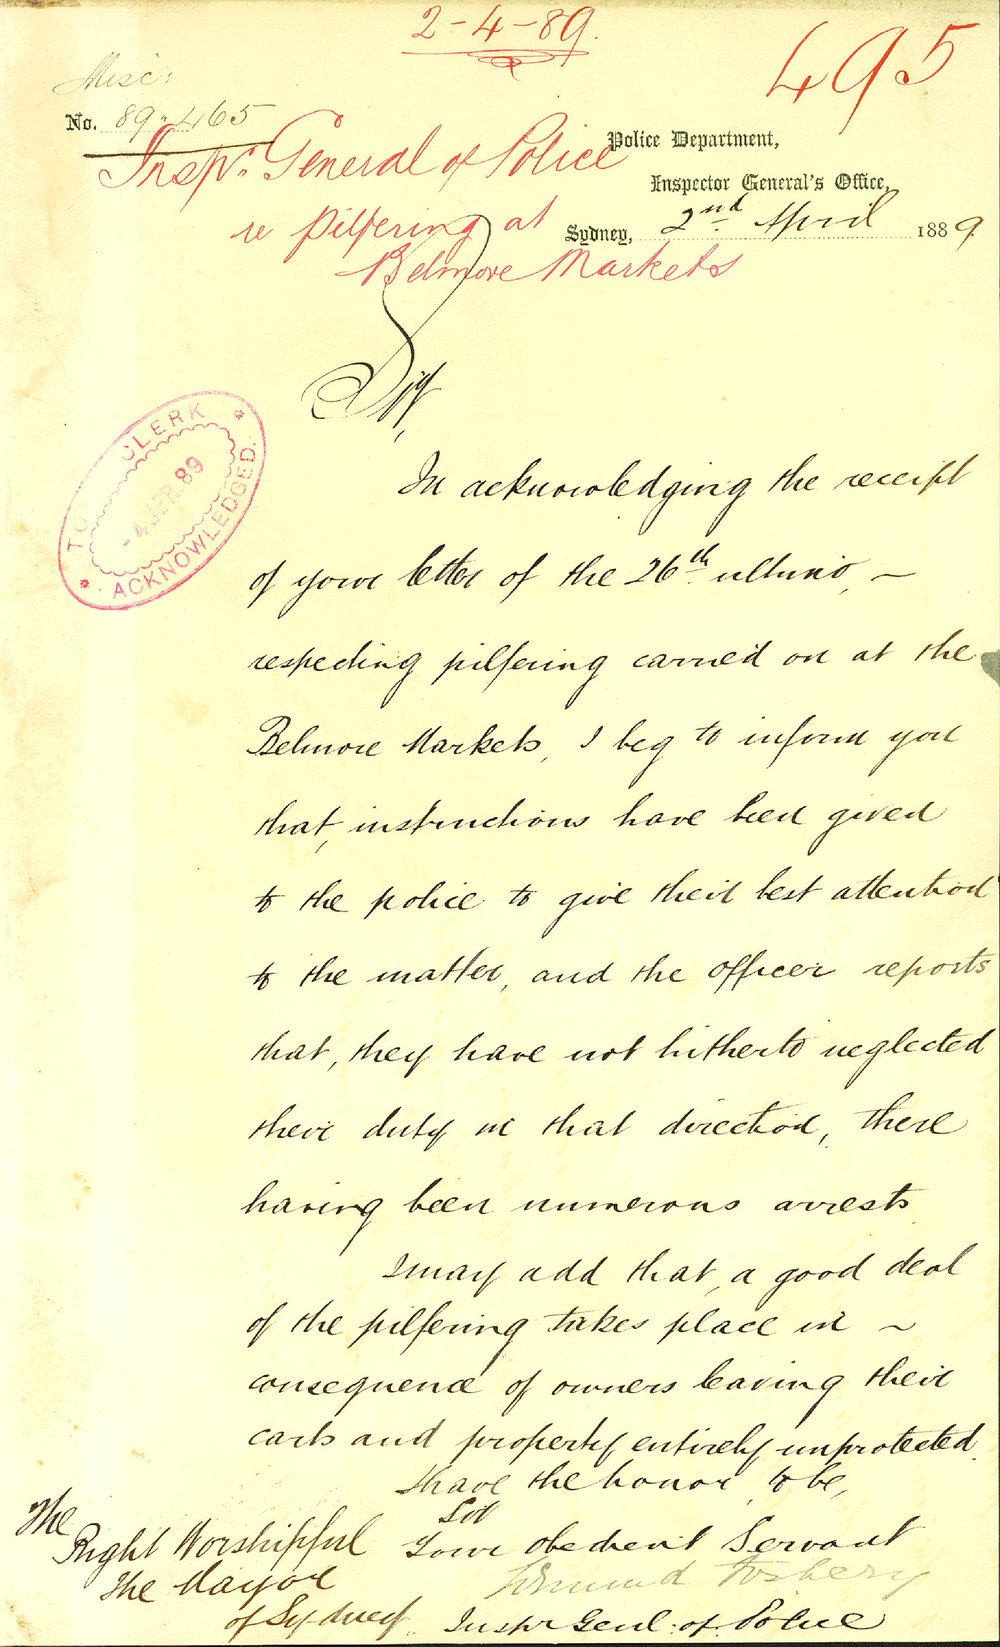 2-4-89.
495
Misc:
No. 89-465
Inspr. General of Police
re Pilfering at
Belmore Markets
Police Department,
Inspector General's Office,
Sydney, 2nd April 1889.
Sir,
In acknowledging the receipt
of your letter of the 26th ultimo, –
respecting pilfering carried on at the
Belmore Markets, I beg to inform you
that, instructions have been given
to the police to give their best attention
to the matter, and the officer reports
that, they have not hitherto neglected
their duty in that direction, there
having been numerous arrests.
I may add that, a good deal
of the pilfering takes place in –
consequence of owners leaving their
carts and property entirely unprotected.
I have the honor to be,
Sir
Your obedient Servant
Edmund Fosbery
Inspr Genl: of Police
The
Right Worshipful
The Mayor
of Sydney.
CLERK
- 4 APR. 89
ACKNOWLEDGED.